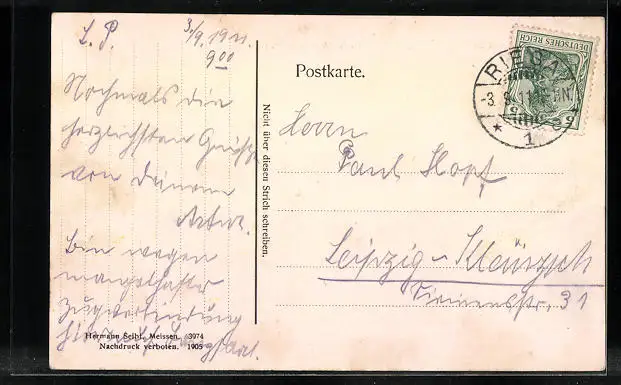 L. P. 3/9. 1911.
9 00
Nochmals die
herzlichsten Grüße
von Deinem
Artur.
Bin wegen
mangelhafter
Zugverbindung
Hermann Seibt, Meissen. 3974
Nachdruck verboten. 1905
Nicht über diesen Strich schreiben.
Postkarte.
DEUTSCHES REICH
RIESA
1
Herrn
Paul Hopf,
Leipzig-Kleinzsch
31